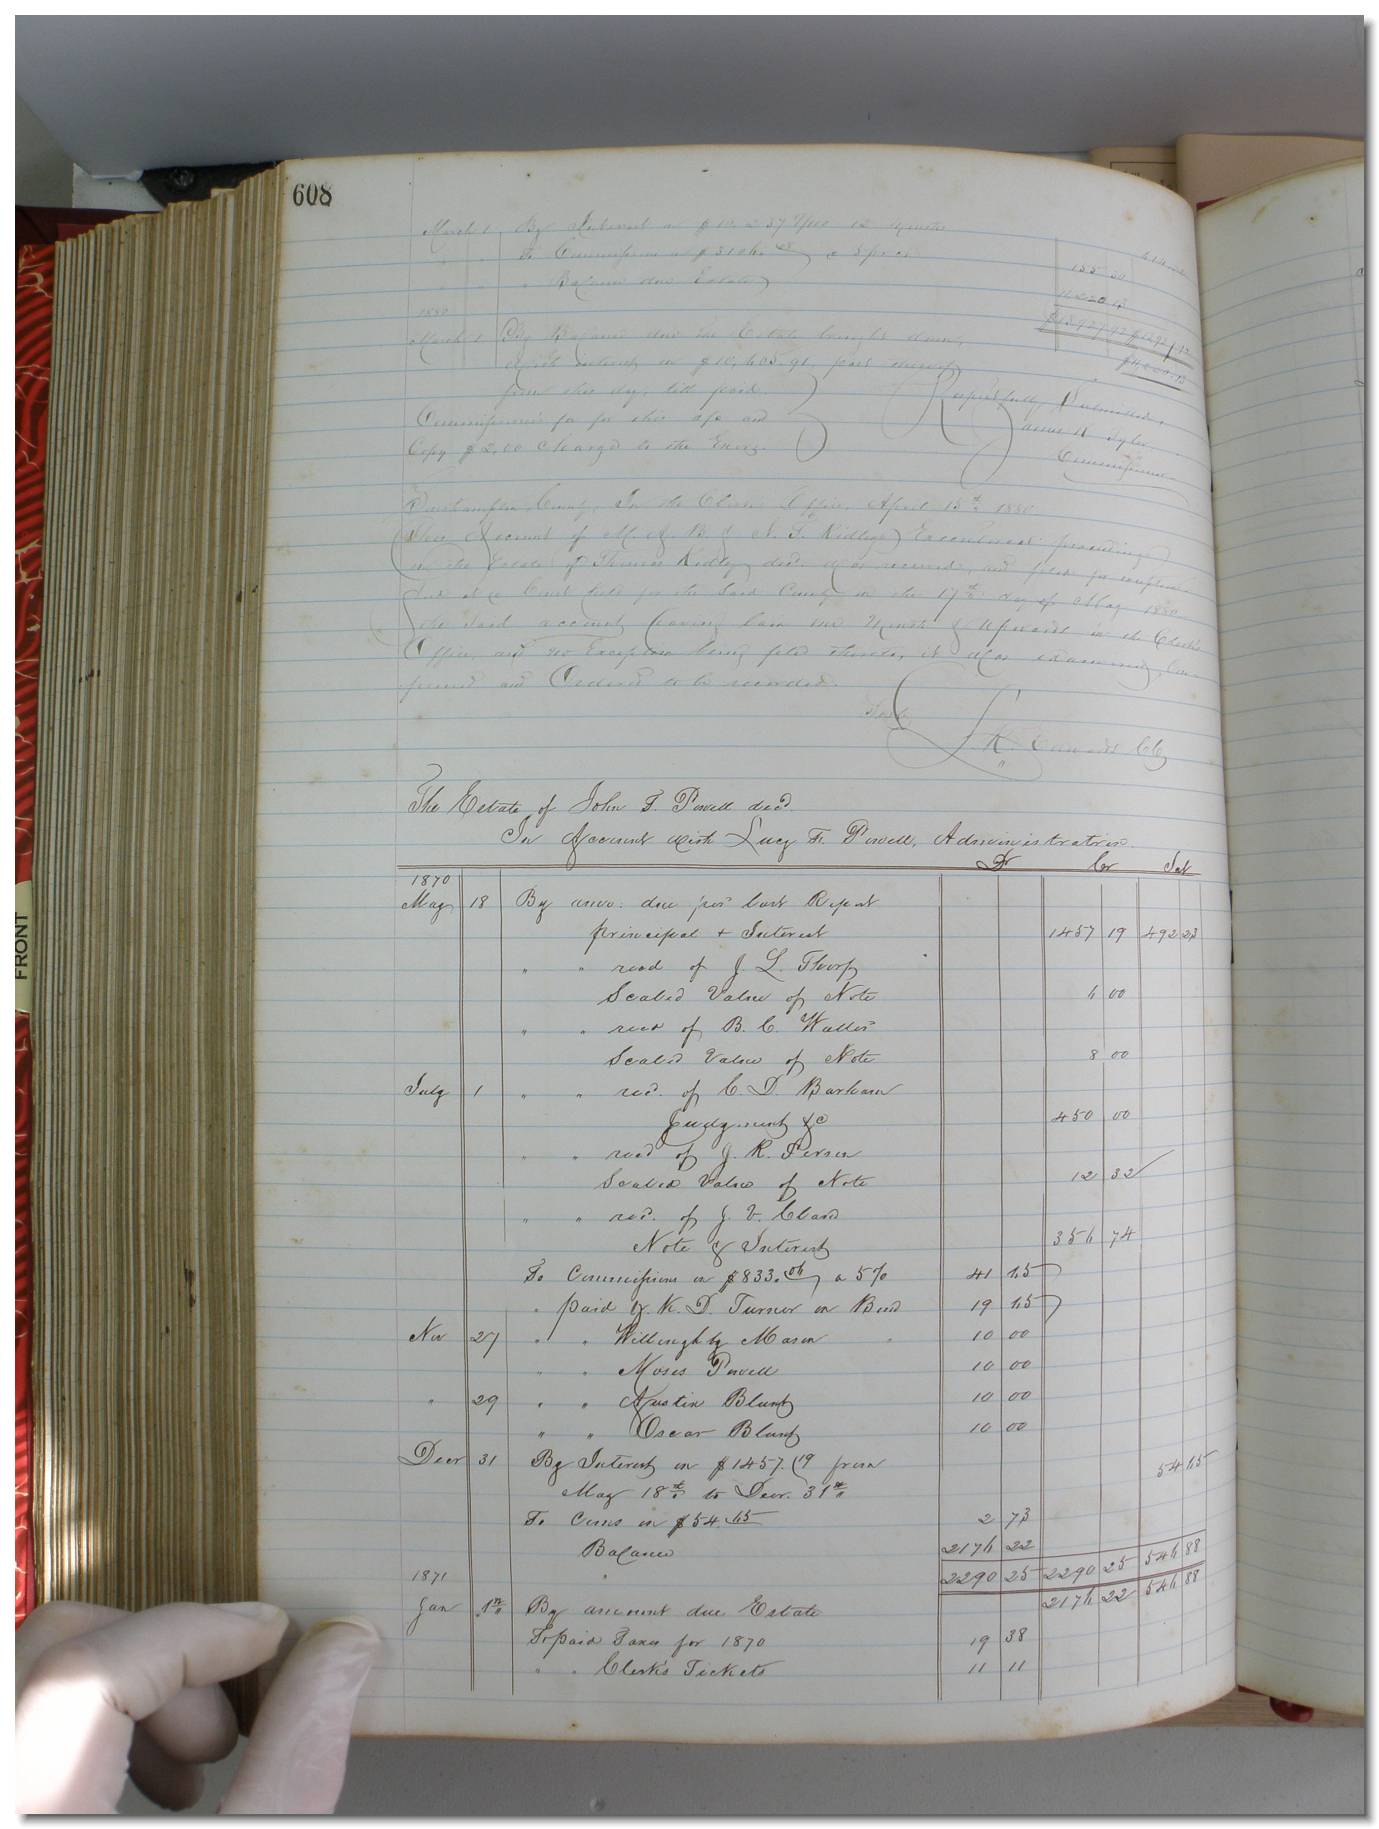 608
March 1 By Interest on $10,237 12 Months
To Commissions on $3106. a 5 pr ct 155 30
" Balance due Estate 11,020 13
1880
March 1 By Balance due the Estate brought down,
with interest on $10,405.91, part thereof
from this day, till paid.
Commissioner's fee for this a/c and
Copy $2.00 charged to the Exors.
Respectfully Submitted,
James H Tyler
Commissioner
Southampton County, In the Clerk's Office, April 15th 1880
This Account of M. A. B. & N. T. Ridley Executors proceedings
on the Estate of Thomas Ridley decd. was received, and filed for exceptions
And at a Court held for the said County on the 17th day of May 1880
the said account having lain one Month & upwards in the Clerk's
Office, and no Exception being filed thereto, it was examined, Con-
firmed and Ordered to be recorded.
Teste
L. R. Edwards Clk
The Estate of John F. Powell decd.
In Account with Lucy F. Powell, Administratrix.
Dr Cr Int
1870
May 18 By amo. due per last Report
principal & Interest 1457 19 492 23
" " recd of J. L. Thorp
Scaled Value of Note 6 00
" " recd of B. C. Waller
Scaled Value of Note 8 00
July 1 " " recd. of C. D. Barham
Judgment &c 450 00
" " recd of J. R. Person
Scaled Value of Note 12 32
" " recd. of J. V. Cland
Note & Interest 356 74
To Commissions on $833.06 a 5% 41 65
" paid R. D. Turner on Bond 19 65
Nov 27 " " Willoughby Mason 10 00
" " Moses Powell 10 00
" 29 " " Austin Blunt 10 00
" " Oscar Blunt 10 00
Decr 31 By Interest on $1457.19 from
May 18th to Decr. 31st 54 65
To Coms on $54.65 2 73
Balance 2176 22
2290 25 2290 25 546 88
1871
Jan 1st By amount due Estate 2176 22 546 88
To paid Taxes for 1870 19 38
" " Clerk's Tickets 11 11
FRONT